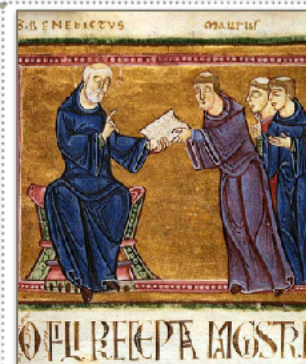 S. BENEDICTVS MAVRUS
O FILI RECEPTA MAGISTRI